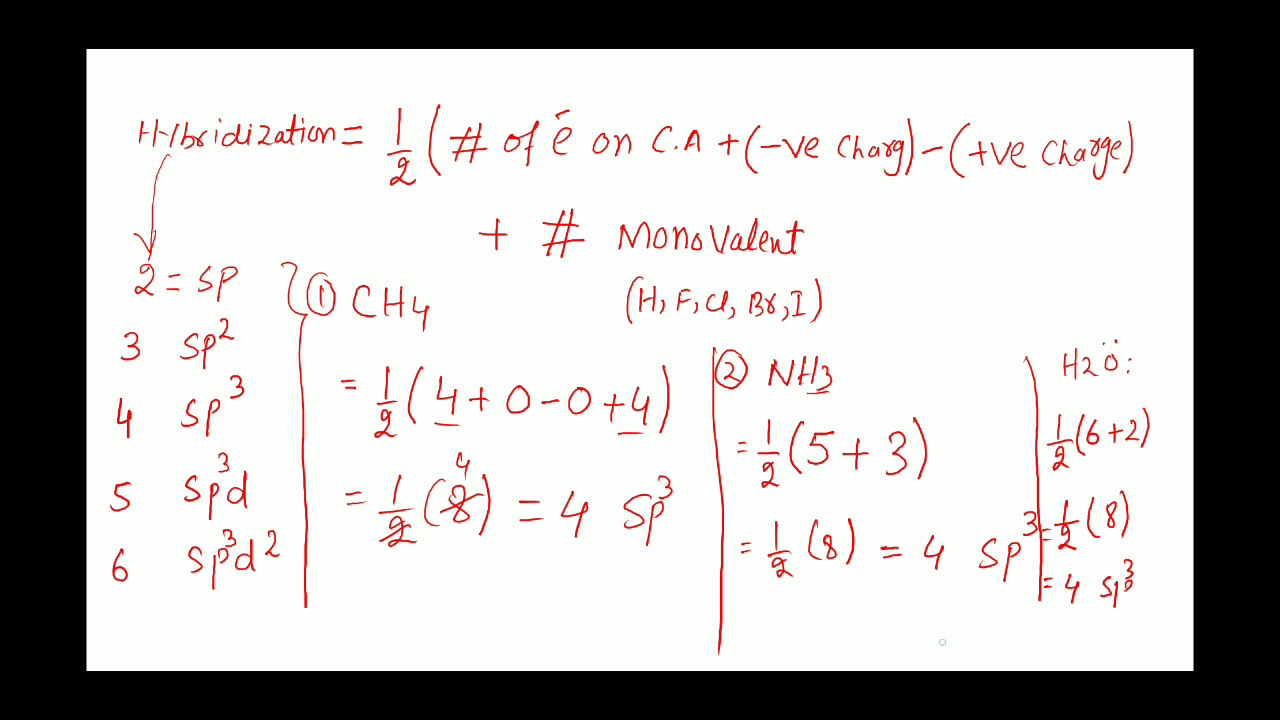 Hybridization = 1/2 ( # of e⁻ on C.A + (-ve Charg) - (+ve Charge)
+ # MonoValent
(H, F, Cl, Br, I)
2 = sp
3 sp²
4 sp³
5 sp³d
6 sp³d²
① CH4
= 1/2 ( 4 + 0 - 0 + 4 )
= 1/2 (8) 4 = 4 sp³
② NH3
= 1/2 ( 5 + 3 )
= 1/2 (8) = 4 sp³
H2Ö:
1/2 (6+2)
= 1/2 (8)
= 4 sp³